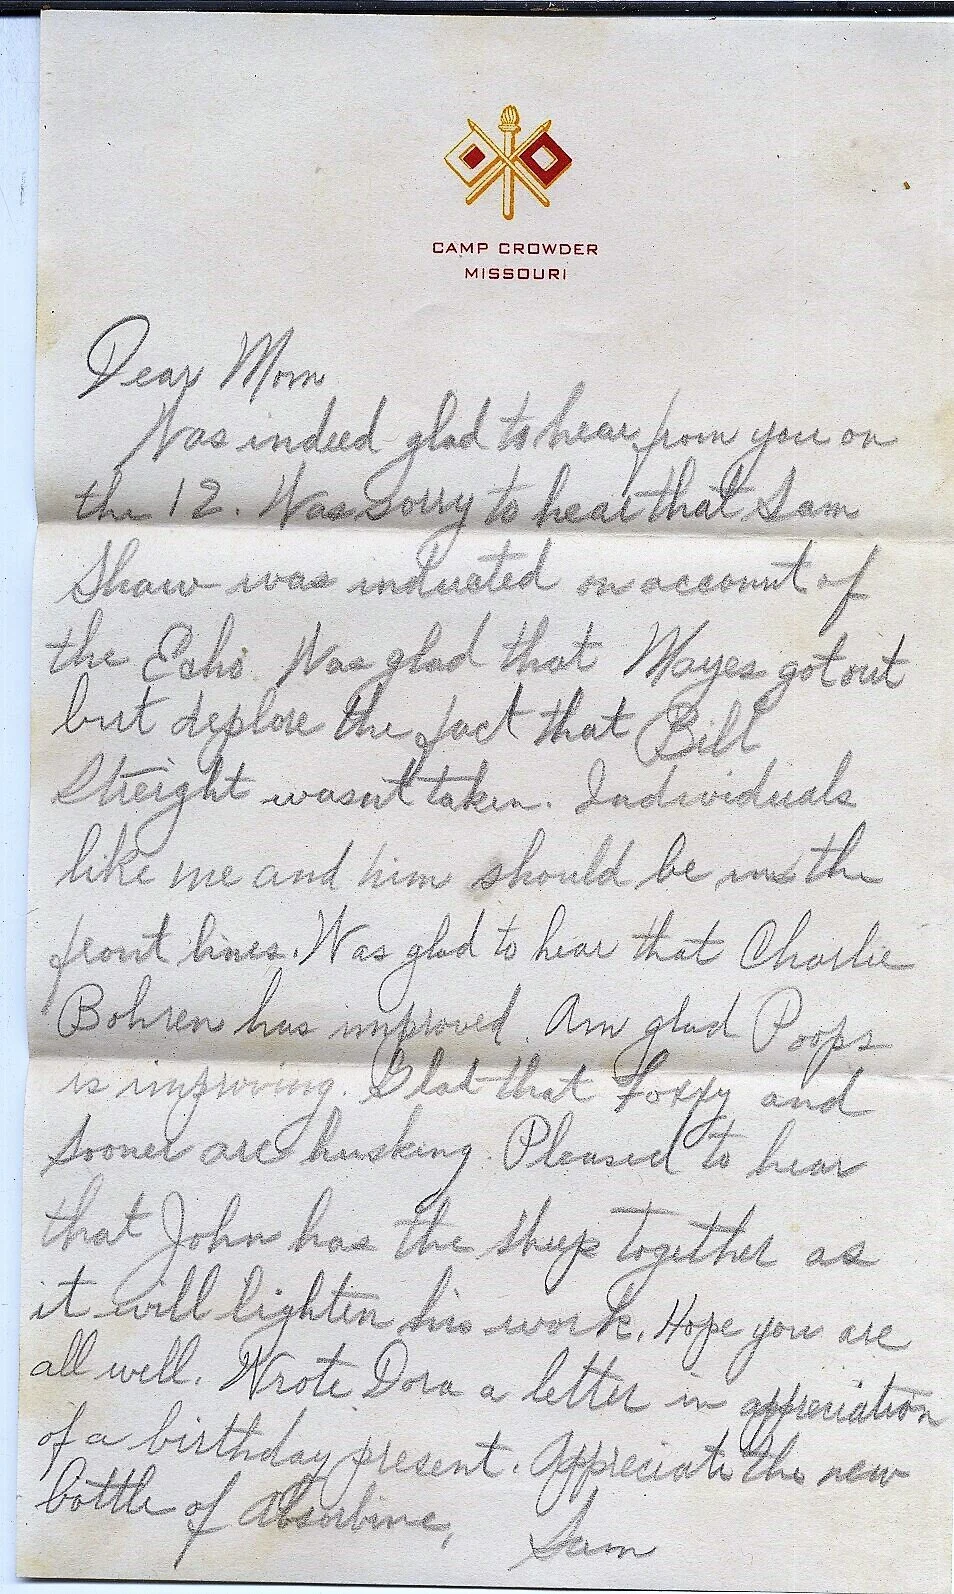 CAMP CROWDER
MISSOURI
Dear Mom
Was indeed glad to hear from you on
the 12. Was sorry to hear that Sam
Shaw was inducted on account of
the Echo. Was glad that Mayes got out
but deplore the fact that Bill
Streight wasnt taken. Individuals
like me and him should be in the
front lines. Was glad to hear that Charlie
Bohren has improved. Am glad Poops
is improving. Glad that Foxxy and
Sooner are husking. Pleased to hear
that John has the sheep together as
it will lighten his work. Hope you are
all well. Wrote Dora a letter in appreciation
of a birthday present. Appreciate the new
bottle of Absorbine,
Sam